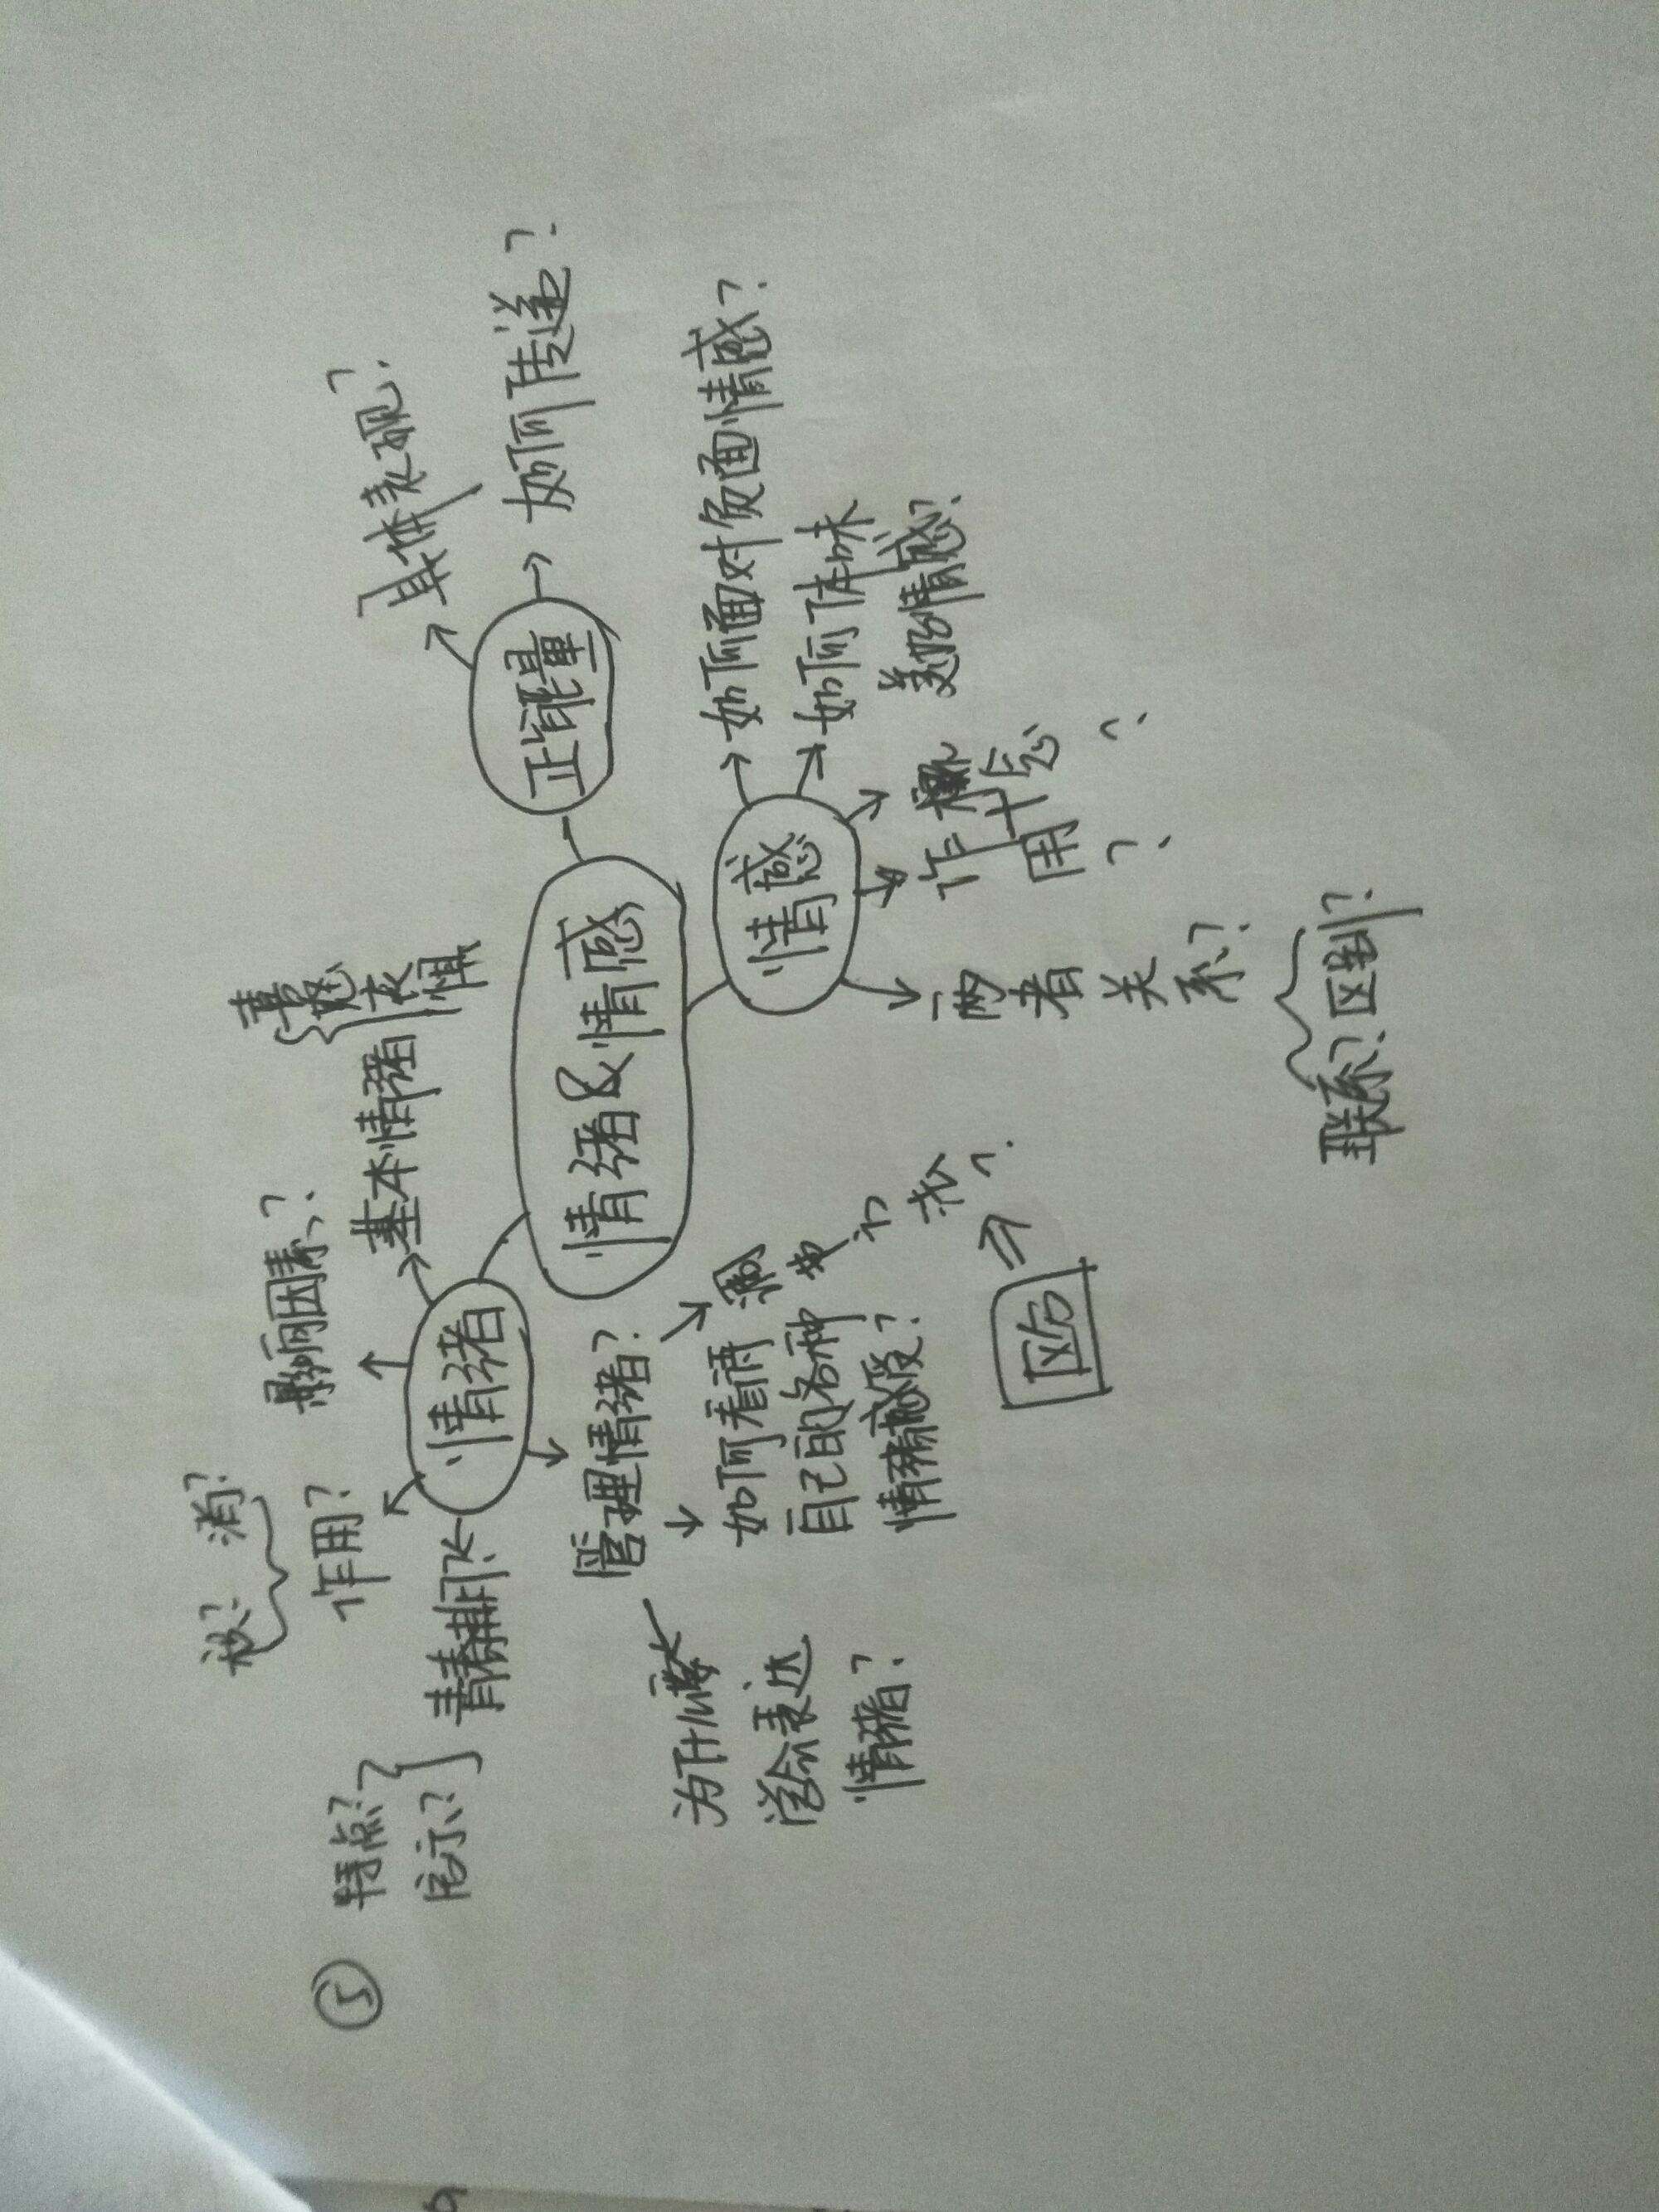 ⑤
特点?
启示?
青春期
积? 消?
作用?
影响因素?
基本情绪
喜
怒
哀
惧
情绪
情绪&情感
正能量
具体表现?
如何传递?
管理情绪?
为什么要
学会表达
情绪?
如何看待
自己的各种
情绪感受?
调节方法?
区分
情感
如何面对负面情感?
如何体味
美好情感?
概念?
作用?
两者关系?
联系? 区别?